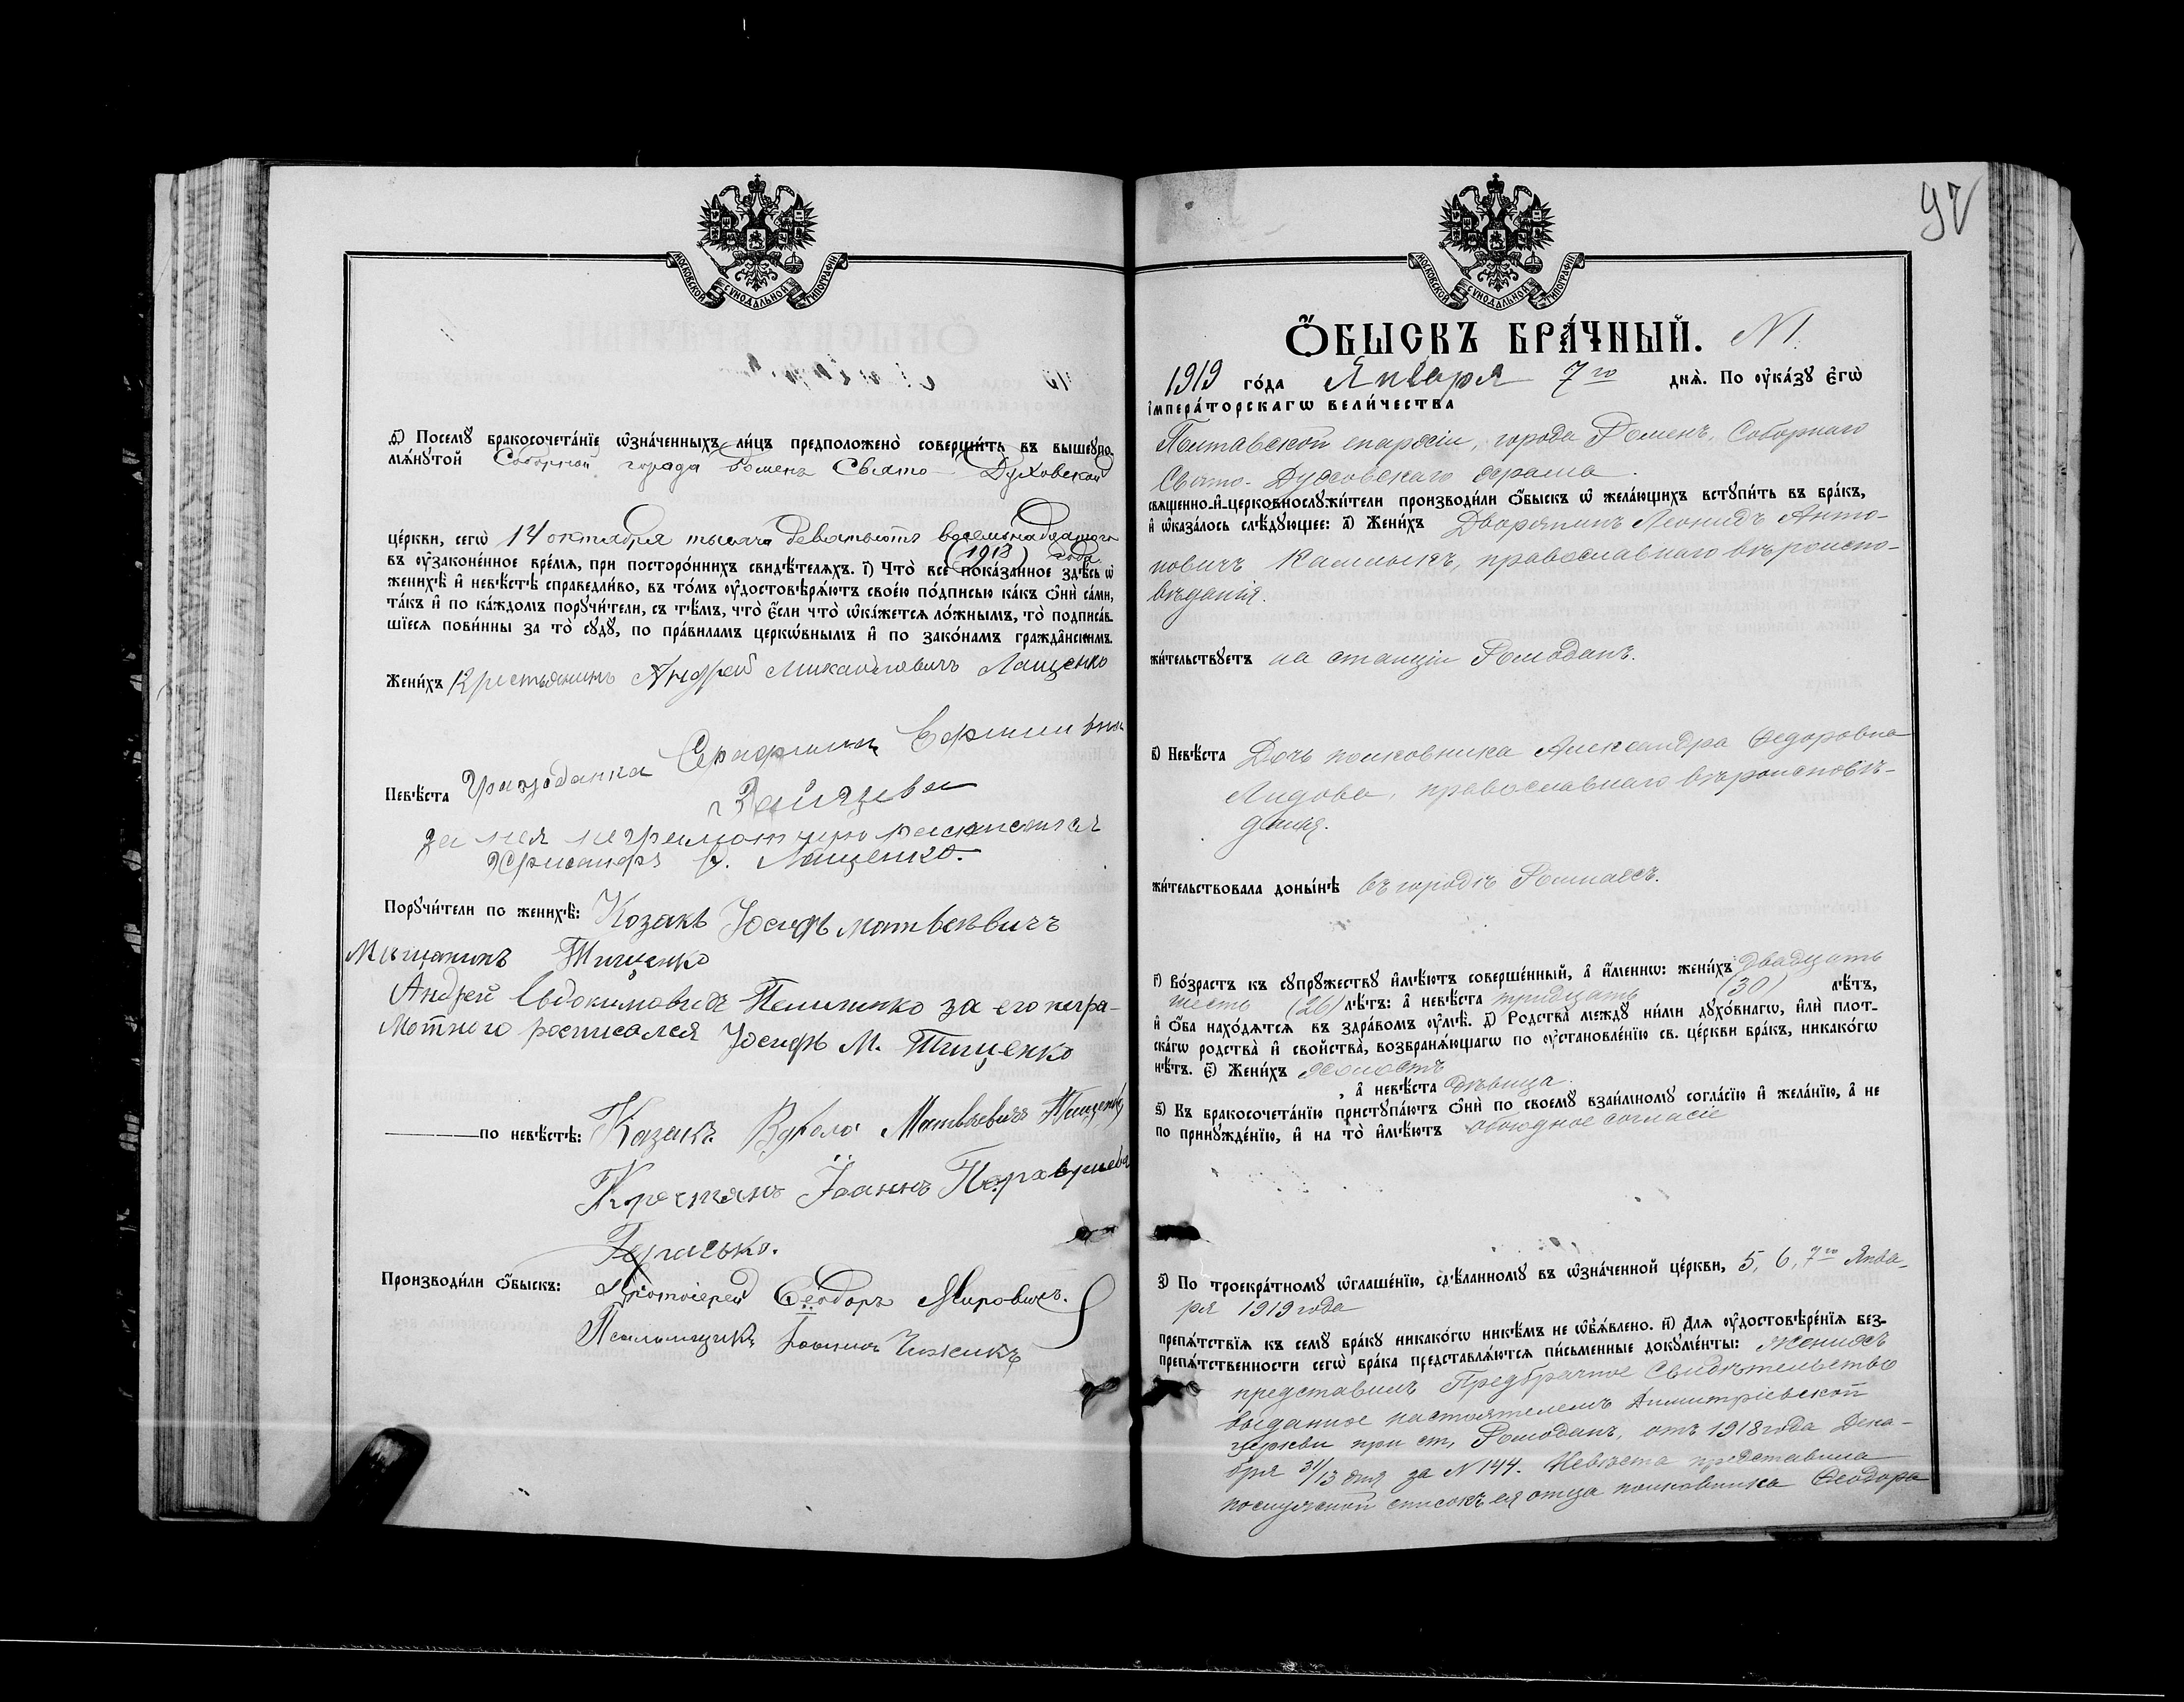 МОСКОВСКОЙ СѴНОДАЛЬНОЙ ТИПОГРАФІИ
ѳ҃) Посемꙋ̀ бракосочета́нїе ѡ҆зна́ченныхъ ли́цъ предположено̀ соверши́ть въ вышеꙋпо-
мѧ́нꙋтой Соборной города Роменъ Свято-Духовской
це́ркви, сегѡ̀ 14 октября тысяча девятьсотъ восемнадцатого
(1918) года
въ ᲂу҆зако́ненное вре́мѧ, при посторо́ннихъ свидѣ́телѧхъ. і҃) Что̀ всѐ пока́занное здѣ́сь ѡ҆
женихѣ̀ и҆ невѣ́стѣ справедли́во, въ то́мъ ᲂу҆достовѣрѧ́ютъ свое́ю по́дписью ка́къ ѻ҆нѝ са́ми,
та́къ и҆ по ка́ждомъ порꙋчи́тели, съ тѣ́мъ, что̀ є҆́сли что̀ ѡ҆ка́жетсѧ ло́жнымъ, то̀ подписа́в-
шїесѧ пови́нны за то̀ сꙋдꙋ̀, по пра́вилам церкѡ́внымъ и҆ по зако́намъ гражда̑нскимъ.
Жени́хъ Крестьянинъ Андрей Михайловичъ Лащенко
Невѣ́ста Гражданка Серафима Ефимовна
Зайцева
за нея неграмотную расписался
Хрисанфъ Лащенко.
Порꙋчи́тели по женихѣ̀: Козакъ Іосифъ Матвѣевичъ
Мѣщанинъ Тищенко
Андрей Евдокимовичъ Пелипенко за его негра-
мотного росписался Іосифъ М. Тищенко
по невѣ́стѣ: Казакъ Матвѣевичъ Тищенко
Крестянъ Іоаннъ
Герасько.
Производи́ли ѻ҆́быскъ: Протоіерей Ѳеодоръ Мировичъ.
Псаломщикъ Іоаннъ Чижикъ
97
МОСКОВСКОЙ СѴНОДАЛЬНОЙ ТИПОГРАФІИ
Ѻ҆́БЫСКЪ БРА́ЧНЫЙ. N 1.
1919 го́да Января 7го днѧ̀. По ᲂу҆ка́зꙋ є҆гѡ̀
і҆мпера́торскагѡ вели́чества
Полтавской епархіи, города Роменъ, Соборнаго
Свято-Духовскаго храма.
свѧще́нно-и҆-церковнослꙋжи́тели производи́ли ѻ҆́быскъ ѡ҆ жела́ющихъ встꙋпи́ть въ бра́къ,
и҆ ѡ҆каза́лось слѣ́дꙋющее: а҃) Жени́хъ Дворянинъ Леонидъ Анто-
новичъ Калмыкъ, православнаго вѣроиспо-
вѣданія.
жи́тельствꙋетъ на станціи Ромоданъ.
в҃) Невѣ́ста Дочь полковника Александра Ѳедоровна
Лидова, православнаго вѣроисповѣ-
данія.
жи́тельствовала доны́нѣ въ городѣ Ромнахъ.
г҃) Во́зрастъ къ сꙋпрꙋ́жествꙋ и҆мѣ́ютъ соверше́нный, а҆ и҆́менно: жени́хъ двадцать
шесть (26) лѣ́тъ: а҆ невѣ́ста тридцать (30) лѣ́тъ,
и҆ ѻ҆́ба нахо́дѧтсѧ въ здра́вомъ ᲂу҆мѣ̀. д҃) Родства̀ междꙋ̀ ни́ми дꙋхо́внагѡ, и҆лѝ плот-
ска́гѡ родства̀ и҆ сво́йства̀, возбранѧ́ющагѡ по ᲂу҆становле́нїю св. це́ркви бра́къ, никако́гѡ
нѣ́тъ. є҃) Жени́хъ холостъ, а҆ невѣ́ста дѣвица.
ѕ҃) Къ бракосочета́нїю пристꙋпа́ютъ ѻ҆нѝ по своемꙋ̀ взаи́мномꙋ согла́сїю и҆ жела́нїю, а҆ не
по принꙋжде́нїю, и҆ на то̀ и҆мѣ́ютъ обоюдное согласіе
з҃) По троекра́тномꙋ ѡ҆глаше́нїю, сдѣ́ланномꙋ въ ѡ҆зна́ченной це́ркви, 5, 6, 7го Янва-
ря 1919 года
препѧ́тствїѧ къ семꙋ̀ бра́кꙋ никако́гѡ никѣ́мъ не ѡ҆б̾ѧ́влено. и҃) Для ᲂу҆достовѣре́нїѧ без-
препѧ́тственности сегѡ̀ бра́ка представлѧ́ютсѧ пи́сьменные докꙋме́нты: Женихъ
представилъ Предбрачное Свидѣтельство
выданное настоятелемъ Димитріевской
церкви при ст. Ромоданъ, отъ 1918 года Дека-
бря 31/13 дня за N 144. Невѣста представила
послужной списокъ ея отца полковника Ѳеодора